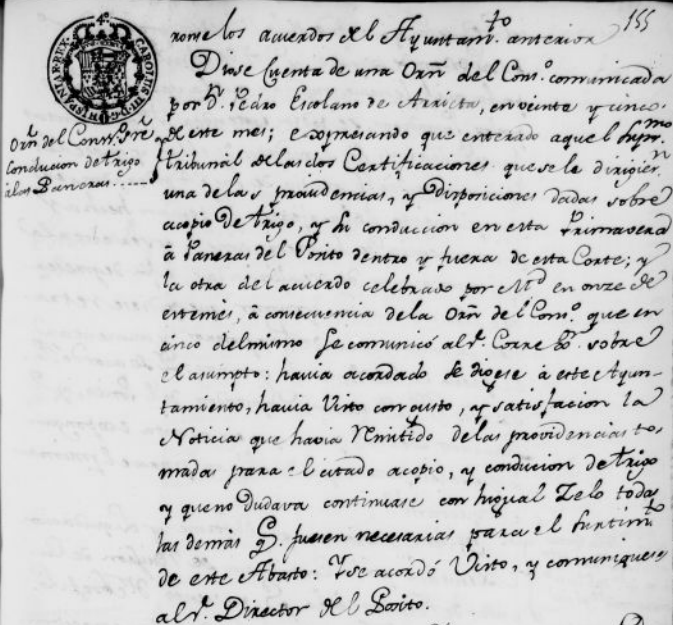 155
rome los acuerdos del Ayuntam.to anterior
Diose Cuenta de una Orñ del Cons.o comunicada
por D.n Pedro Escolano de Arrieta, en veinte y cinco
de este mes; expresando que enterado aquel Supr.mo
Tribunal de las dos Certificaciones que se le dirigier.n
una de las providencias, y Disposiciones dadas sobre
acopio de trigo, y su conduccion en esta Primavera
à Paneras del Posito dentro y fuera de esta Corte; y
la otra del acuerdo celebrado por M.d en onze de
este mes, à consecuencia de la Orñ del Cons.o que en
cinco del mismo se comunicó al S.r Corre.or sobre
el asumpto: havia acordado se digese à este Ayun-
tamiento, havia Visto con gusto, y satisfacion la
Noticia que havia Remitido de las providencias to-
mada para el citado acopio, y conducion de trigo
y que no Dudava continuase con higual Zelo todas
las demás q. fuesen necesarias para el surtim.to
de este Abasto: Y se acordó Visto, y comuniquese
al S.r Director del Posito.
Orñ del Cons.o Sre
Conducion de trigo
à las Paneras
CAROLUS III D. G. HISPANIAR. REX